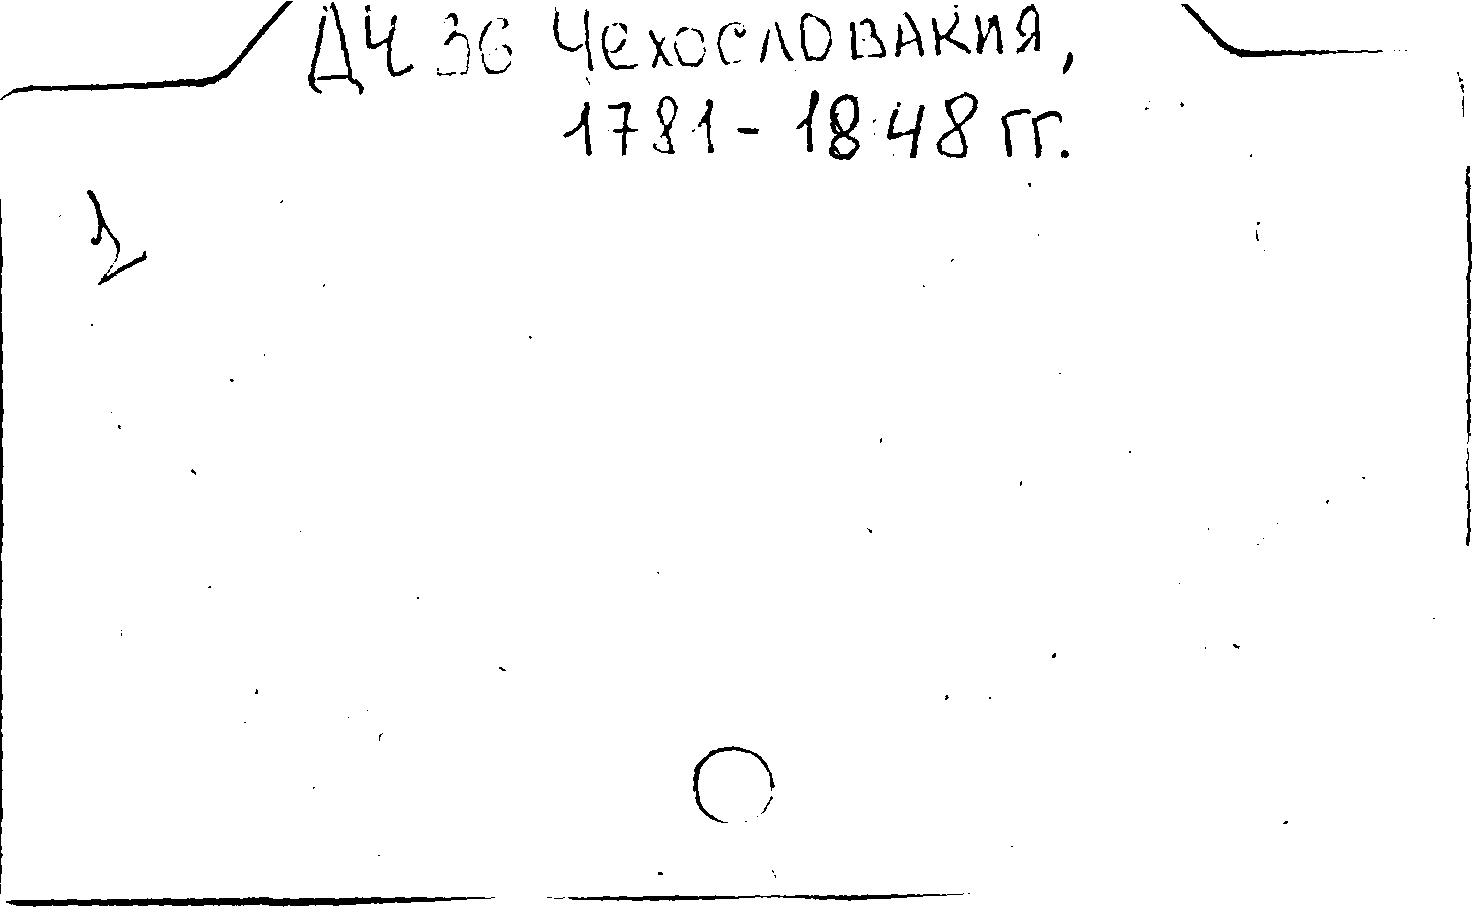 ДЧ 36 Чехословакия,
1781-1848 гг.